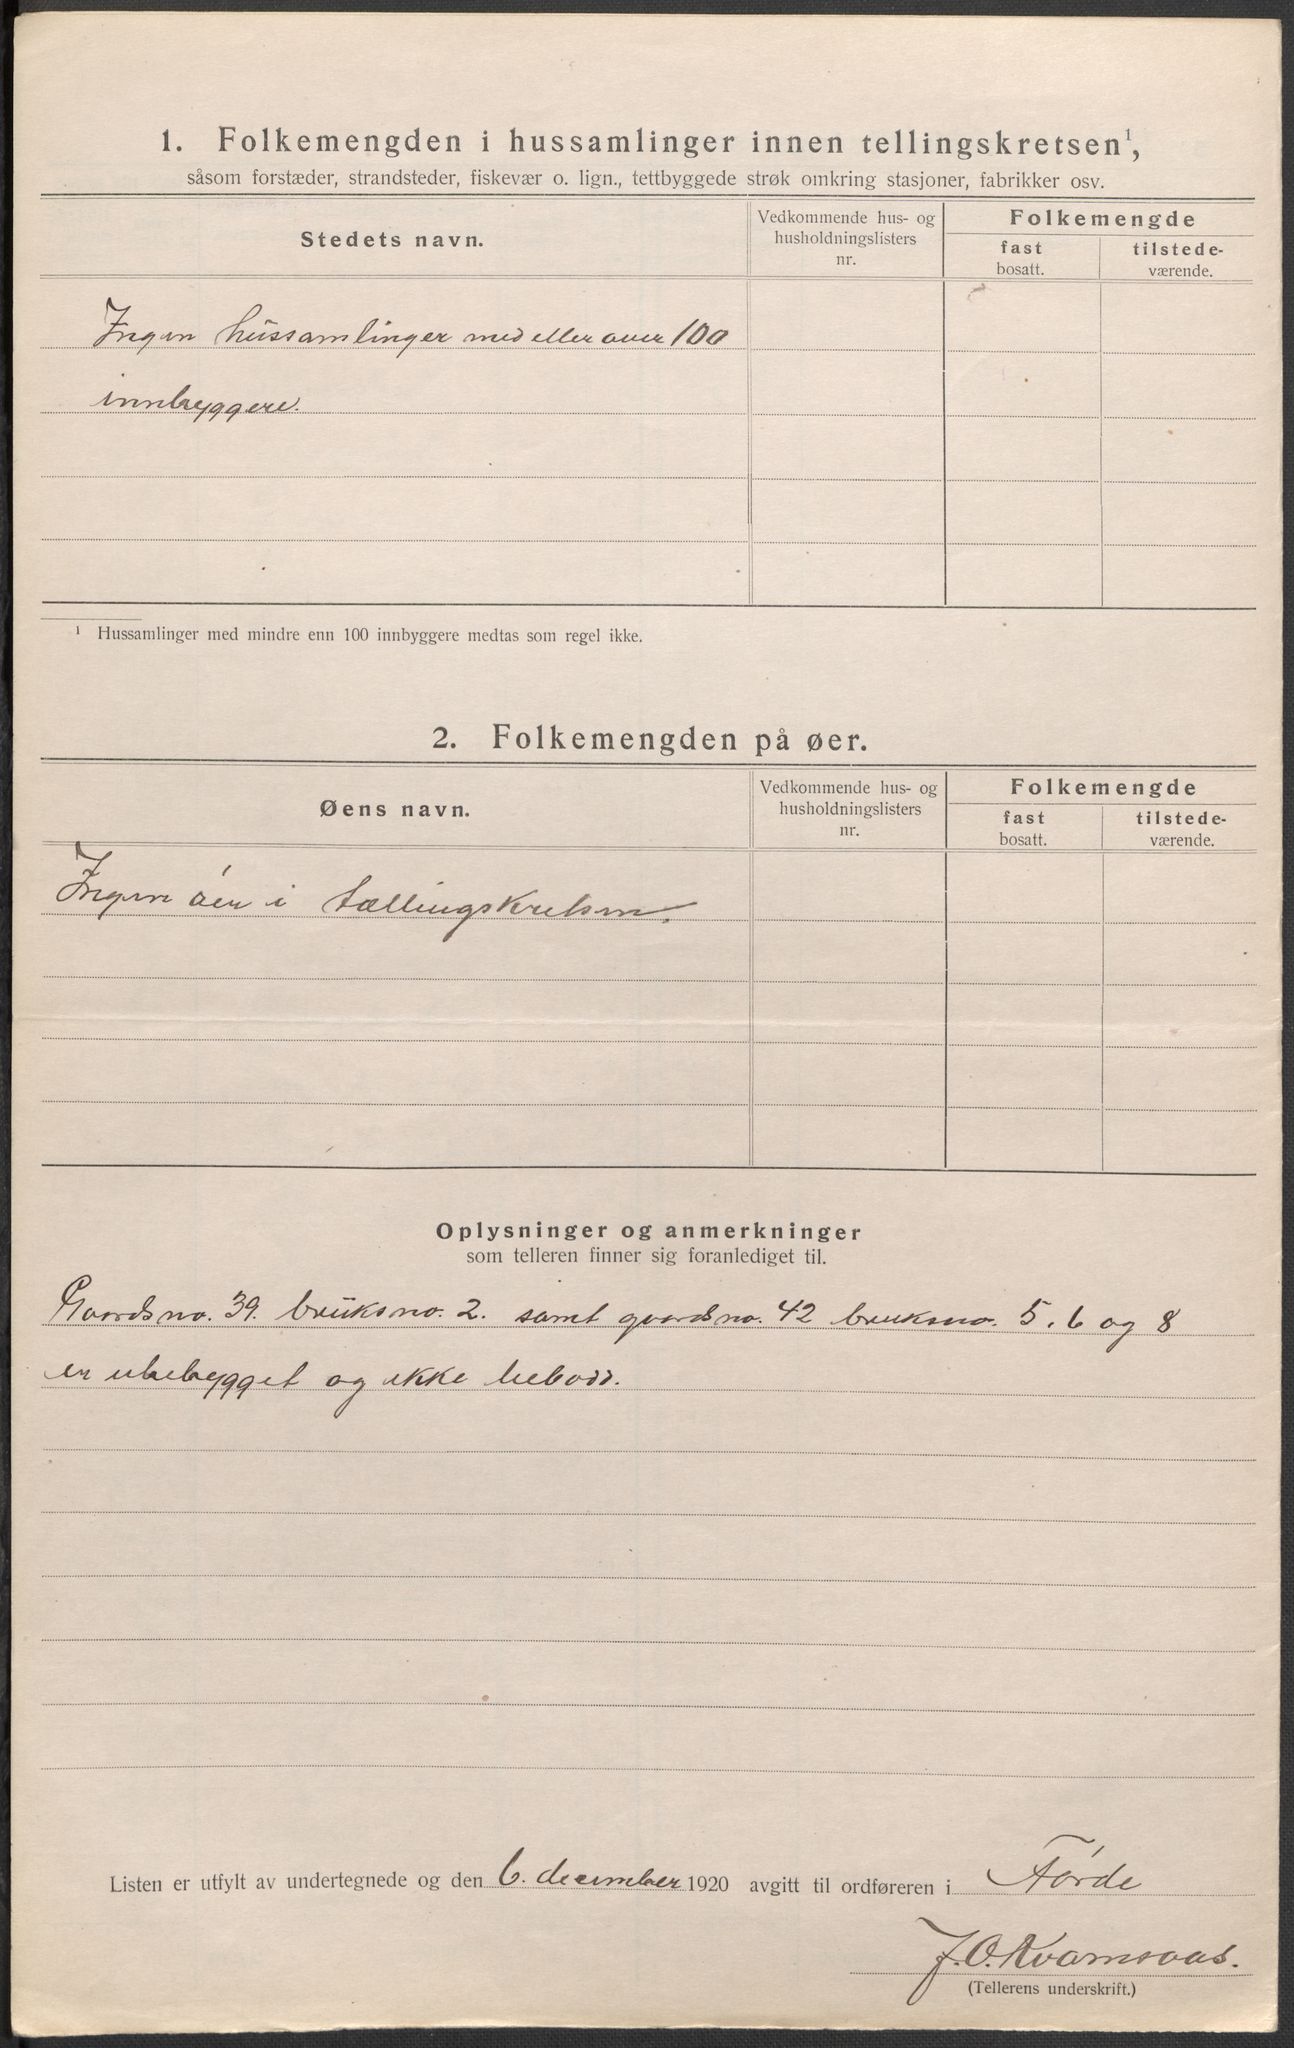 1. Folkemengden i hussamlinger innen tellingskretsen¹,
såsom forstæder, strandsteder, fiskevær o. lign., tettbyggede strøk omkring stasjoner, fabrikker osv.
Stedets navn.
Vedkommende hus- og
husholdningslisters
nr.
Folkemengde
fast
bosatt.
tilstede-
værende.
Ingen hussamlinger med eller over 100
innbyggere.
¹ Hussamlinger med mindre enn 100 innbyggere medtas som regel ikke.
2. Folkemengden på øer.
Øens navn.
Vedkommende hus- og
husholdningslisters
nr.
Folkemengde
fast
bosatt.
tilstede-
værende.
Ingen öer i tællingskretsen.
Oplysninger og anmerkninger
som telleren finner sig foranlediget til.
Gaardsno. 39. bruksno. 2. samt gaardsno. 42 bruksno. 5. 6 og 8
er ubebygget og ikke bebodd.
Listen er utfylt av undertegnede og den 6. december 1920 avgitt til ordføreren i Förde
J. O. Kvamsaas.
(Tellerens underskrift.)